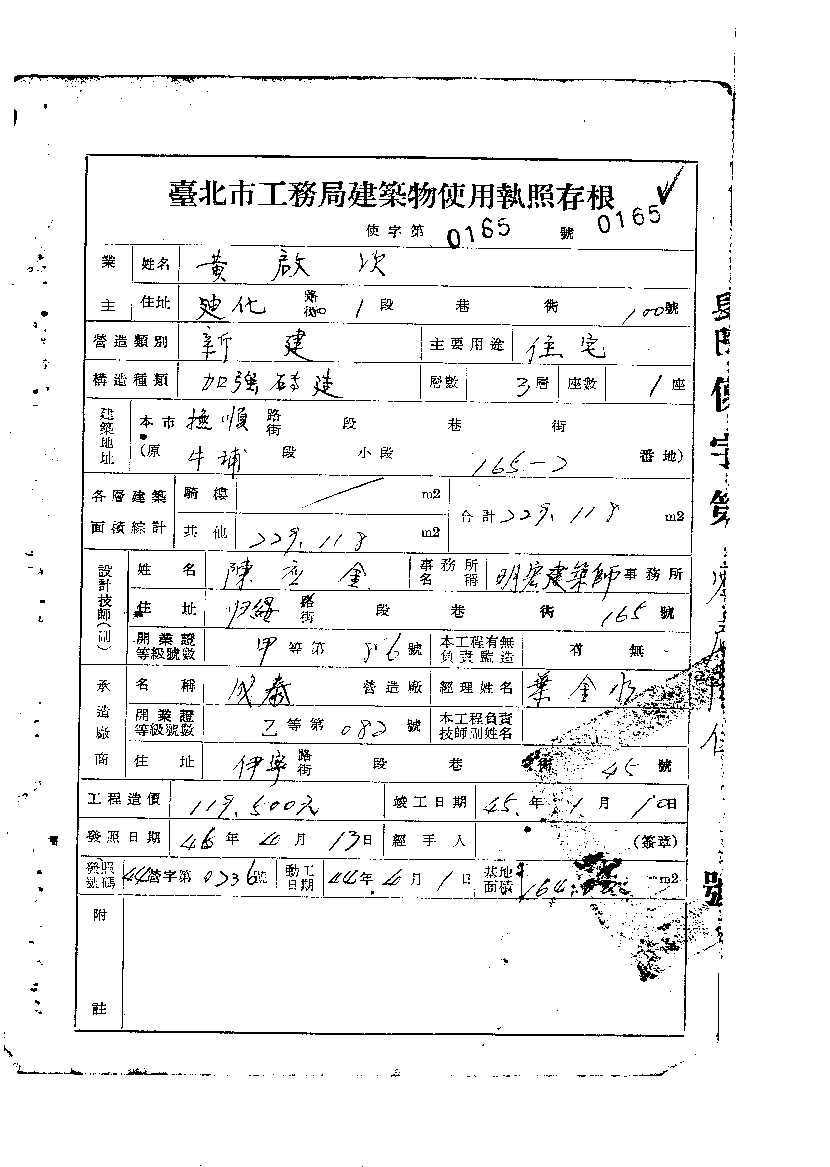 臺北市工務局建築物使用執照存根
使字第 0165 號 0165
業主 姓名 黃啟次
住址 迪化 路街 1 段 巷 街 100號
營造類別 新建 主要用途 住宅
構造種類 加強磚造 層數 3層 座數 1座
建築地址 本市 撫順 路街 段 巷 街
(原 牛埔 段 小段 165-2 番地)
各層建築面積綜計 騎樓 m2 合計 229.118 m2
其他 229.118 m2
設計技師(副) 姓名 陳 金 事務所名稱 明宏建築師事務所
住址 歸綏 路街 段 巷 街 165 號
開業證等級號數 甲等第 86號 本工程有無負責監造 有 無
承造廠商 名稱 成泰 營造廠 經理姓名 葉金水
開業證等級號數 乙等第 082 號 本工程負責技師副姓名
住址 伊寧 路街 段 巷 街 45 號
工程造價 119,500元 竣工日期 45年 1月 10日
發照日期 46年 4月 13日 經手人 (簽章)
發照號碼 44營字第0736號 動工日期 44年 4月 1日 基地面積 164. m2
附註
使字第
號